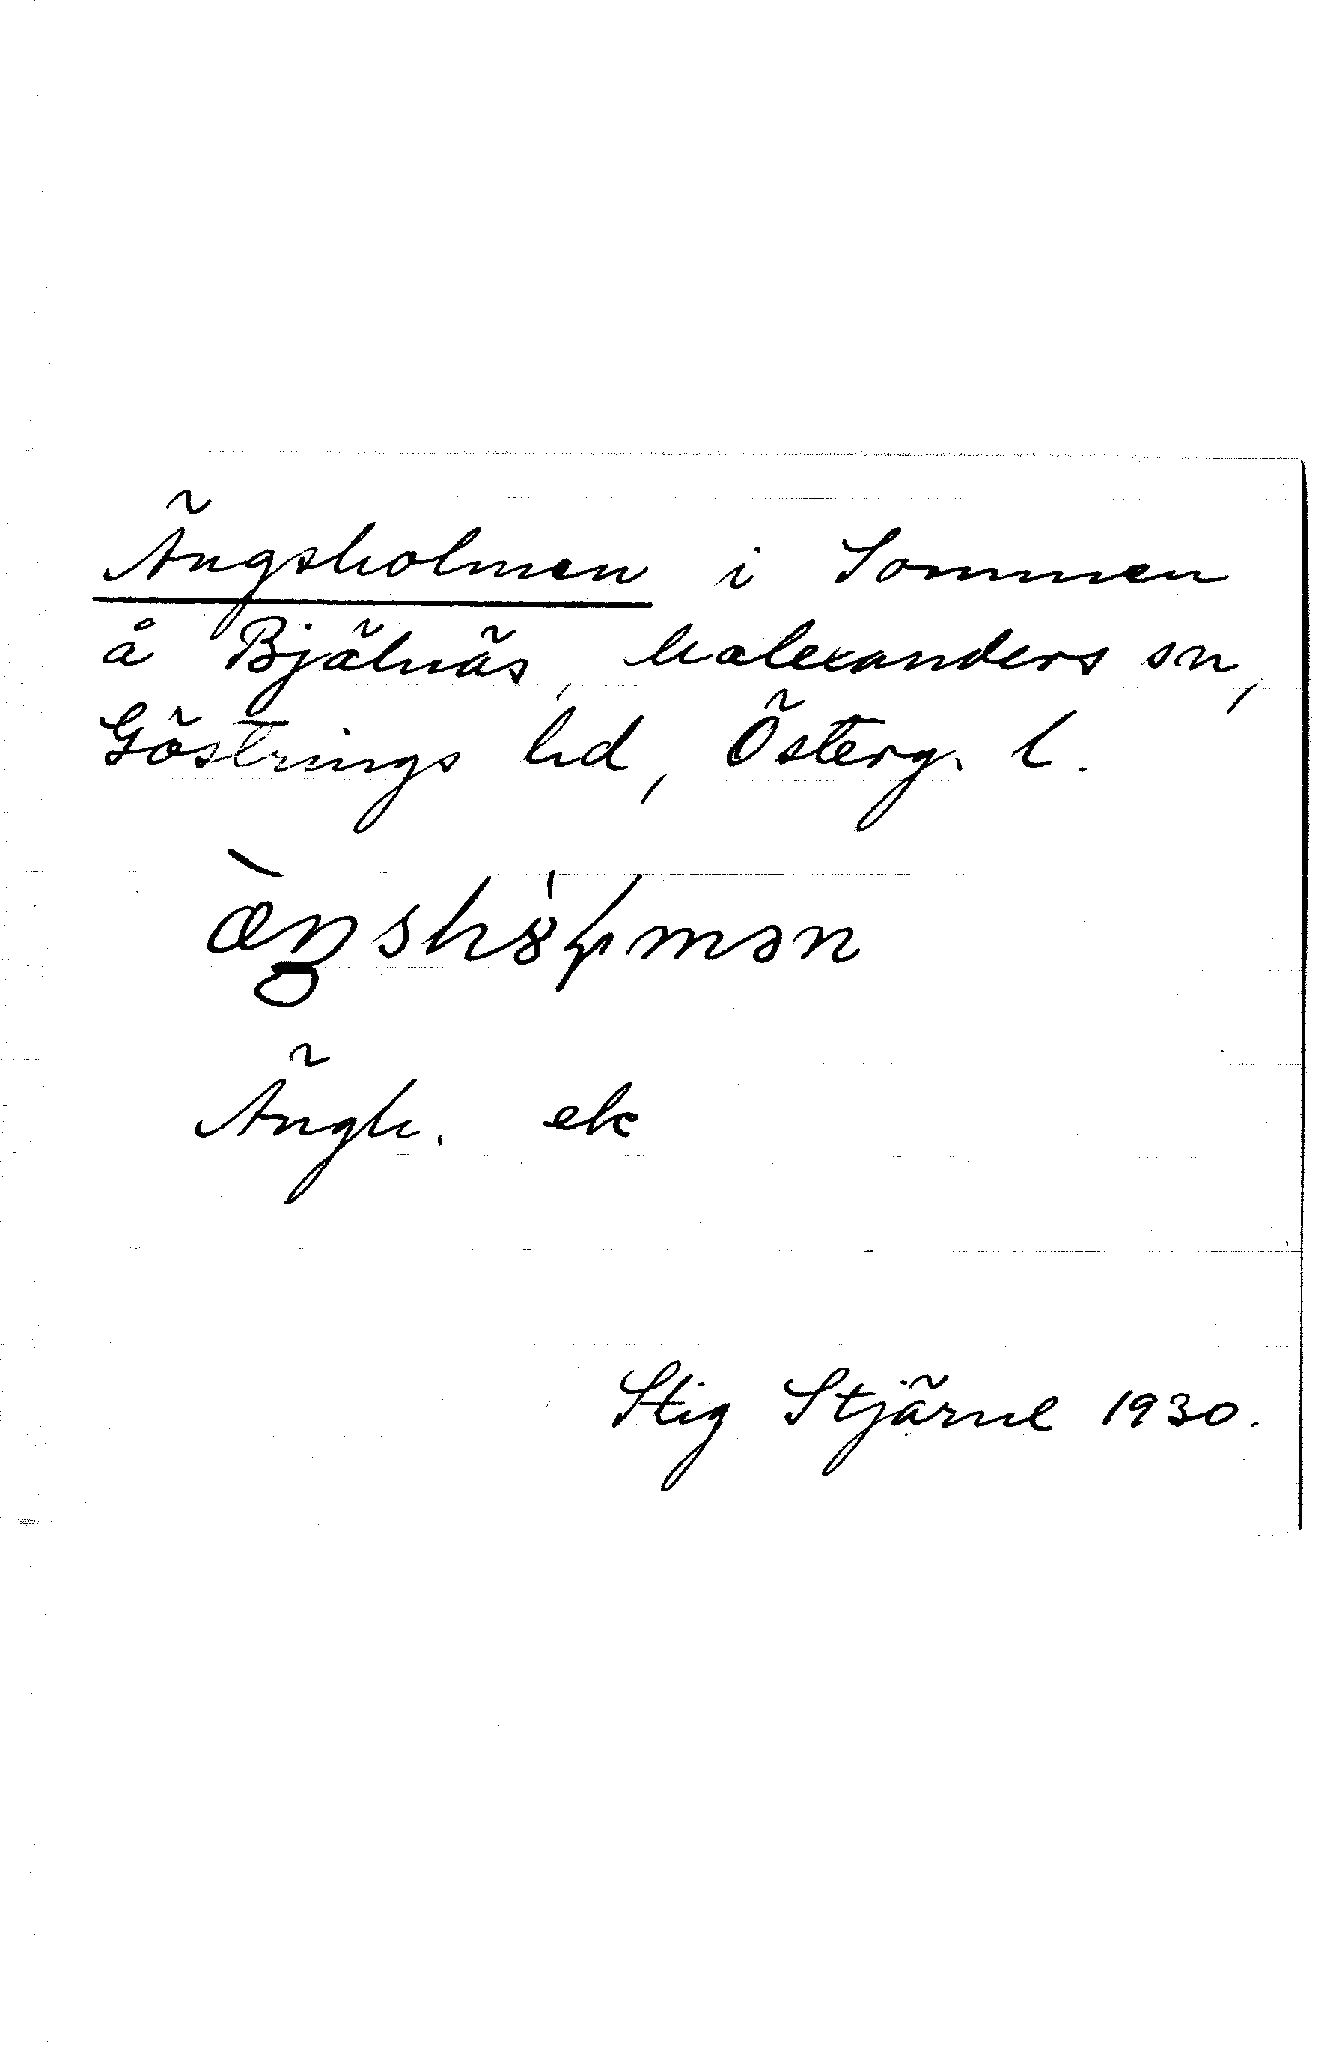 Ängsholmen i Sommen
å Bjälnäs, Malexanders sn,
Göstrings hd, Österg. l.
Ängh. ek
Stig Stjärne 1930.